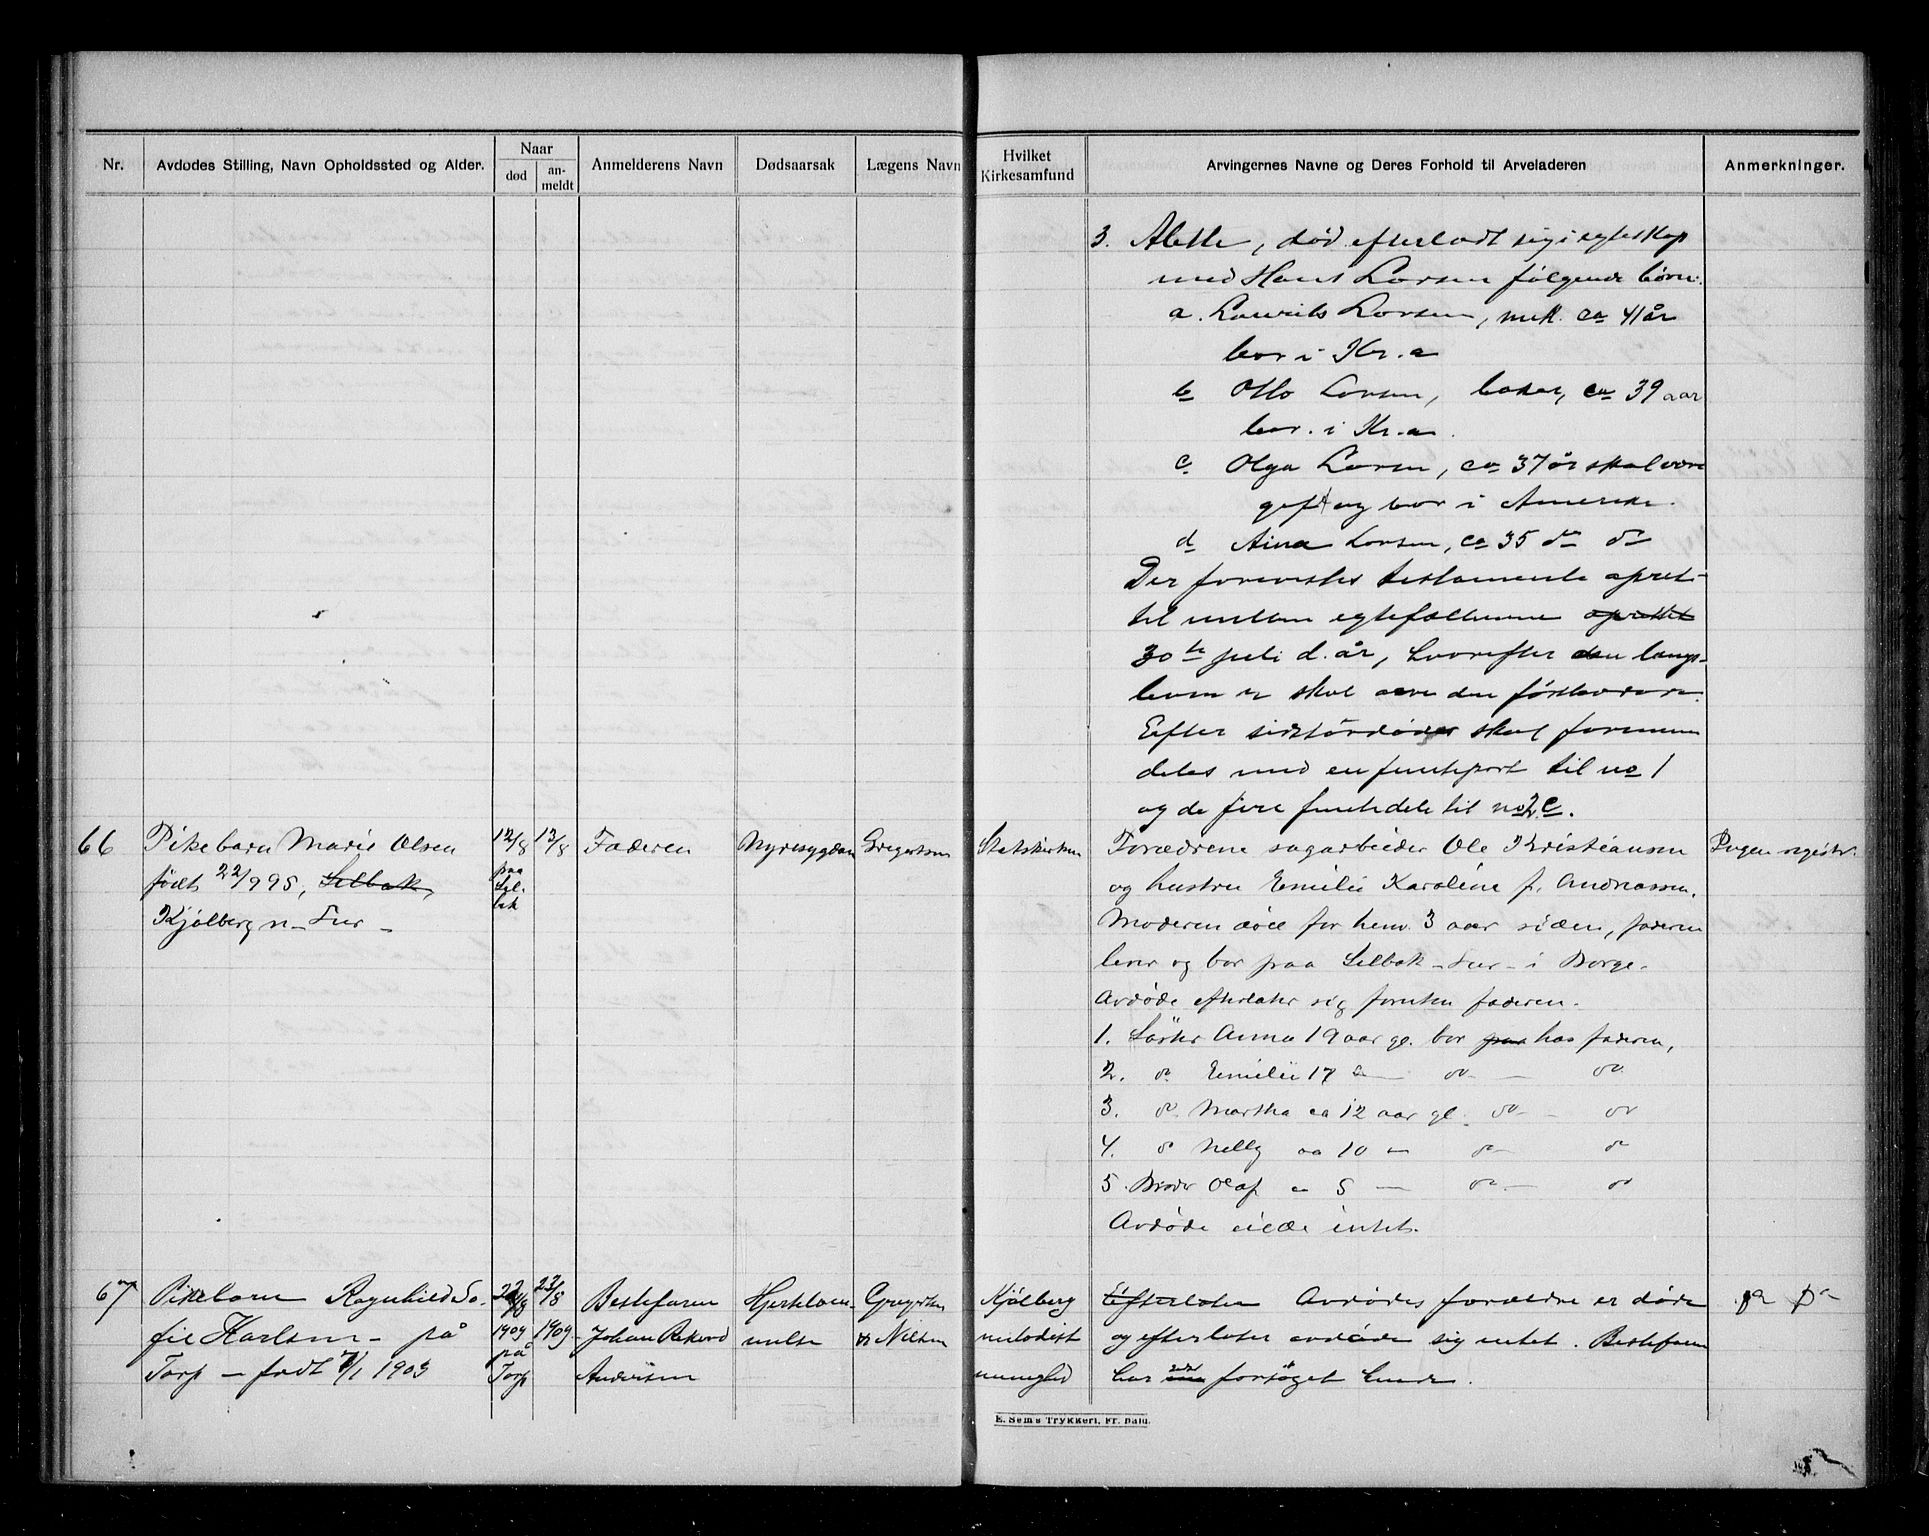 Nr.
Avdødes Stilling, Navn Opholdssted og Alder.
Naar
død
an-
meldt
Anmelderens Navn
Dødsaarsak
Lægens Navn
Hvilket
Kirkesamfund
Arvingernes Navne og Deres Forhold til Arveladeren
Anmerkninger.
3. Alette, død efterladt sig i egteskap
med Hans Larsen følgende børn:
a. Laurits Larsen, ca 41 år
bor i Kr.a
b Otto Larsen, baker, ca 39 aar
bor i Kr.a.
c. Olga Larsen, ca 37 år skal være
gift og bor i Amerika.
d Aina Larsen, ca 35 do do
Der forevistes testamente opret-
tet mellem egtefællerne oprettet
30te juli d. år, hvorefter den længs-
levende skal arve den
Efter skal formuen
deles med en femtepart til no 1
og de fire femtedele til no 2 c.
66
Pikebarn Marie Olsen
født 22/9 95, Selbak,
Kjølberg n - Fur -
12/8
paa
Sel-
bak
13/8
Faderen
Nyresygdom
Gregersen
Statskirken
Forældrene sagarbeider Ole Kristiansen
og hustru Emilie Karoline f. Andreassen.
Moderen død for henv. 3 aar siden, faderen
lever og bor paa Selbak - Fur - i Borge.
Avdøde efterlater sig foruten faderen.
1. Søster Anna 19 aar gl. bor paa hos faderen,
2. do Emilie 17 do do
3. do Martha ca 12 aar gl. do do
4. do Nelly ca 10 - do do
5. Broder Olaf - 5 - do do
Avdøde eiede intet.
Ingen registr.
67
Pikebarn Ragnhild So-
fie Karlsen - på
Torp - født 7/1 1903
22/8
1909
på
Torp
23/8
1909
Bestefaren
Johan Rikard
Andersen
Hjertelam-
melse
Gregersen
Nilsen
Kjølberg
metodist
menighed
Efterlater Avdødes forældre er døde
og efterlater avdøde sig intet. Bestefaren
har forsøget hende.
do do
E. Sem's Trykkeri, Fr. hald.